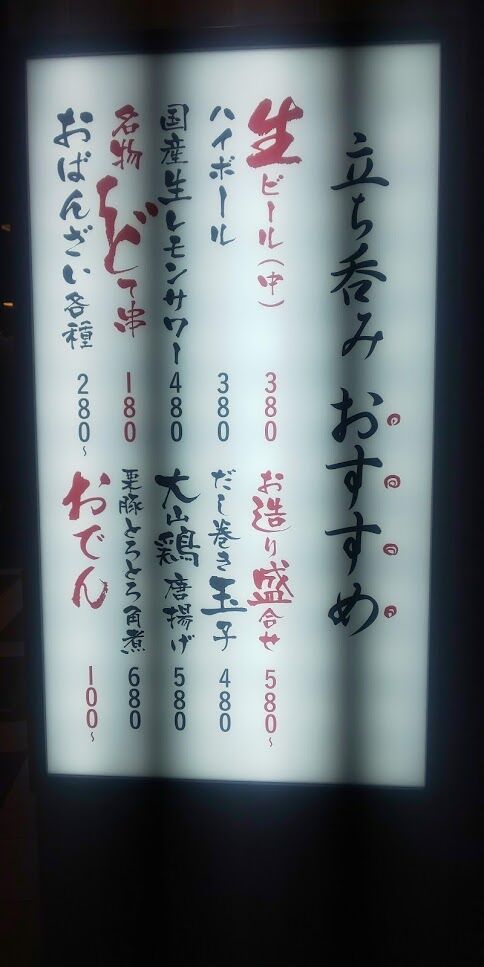 立ち呑みおすすめ
生ビール(中) 380
ハイボール 380
国産生レモンサワー 480
名物どて串 180
おばんざい各種 280~
お造り盛合せ 580~
だし巻き玉子 480
大山鶏唐揚げ 580
栗豚とろとろ角煮 680
おでん 100~